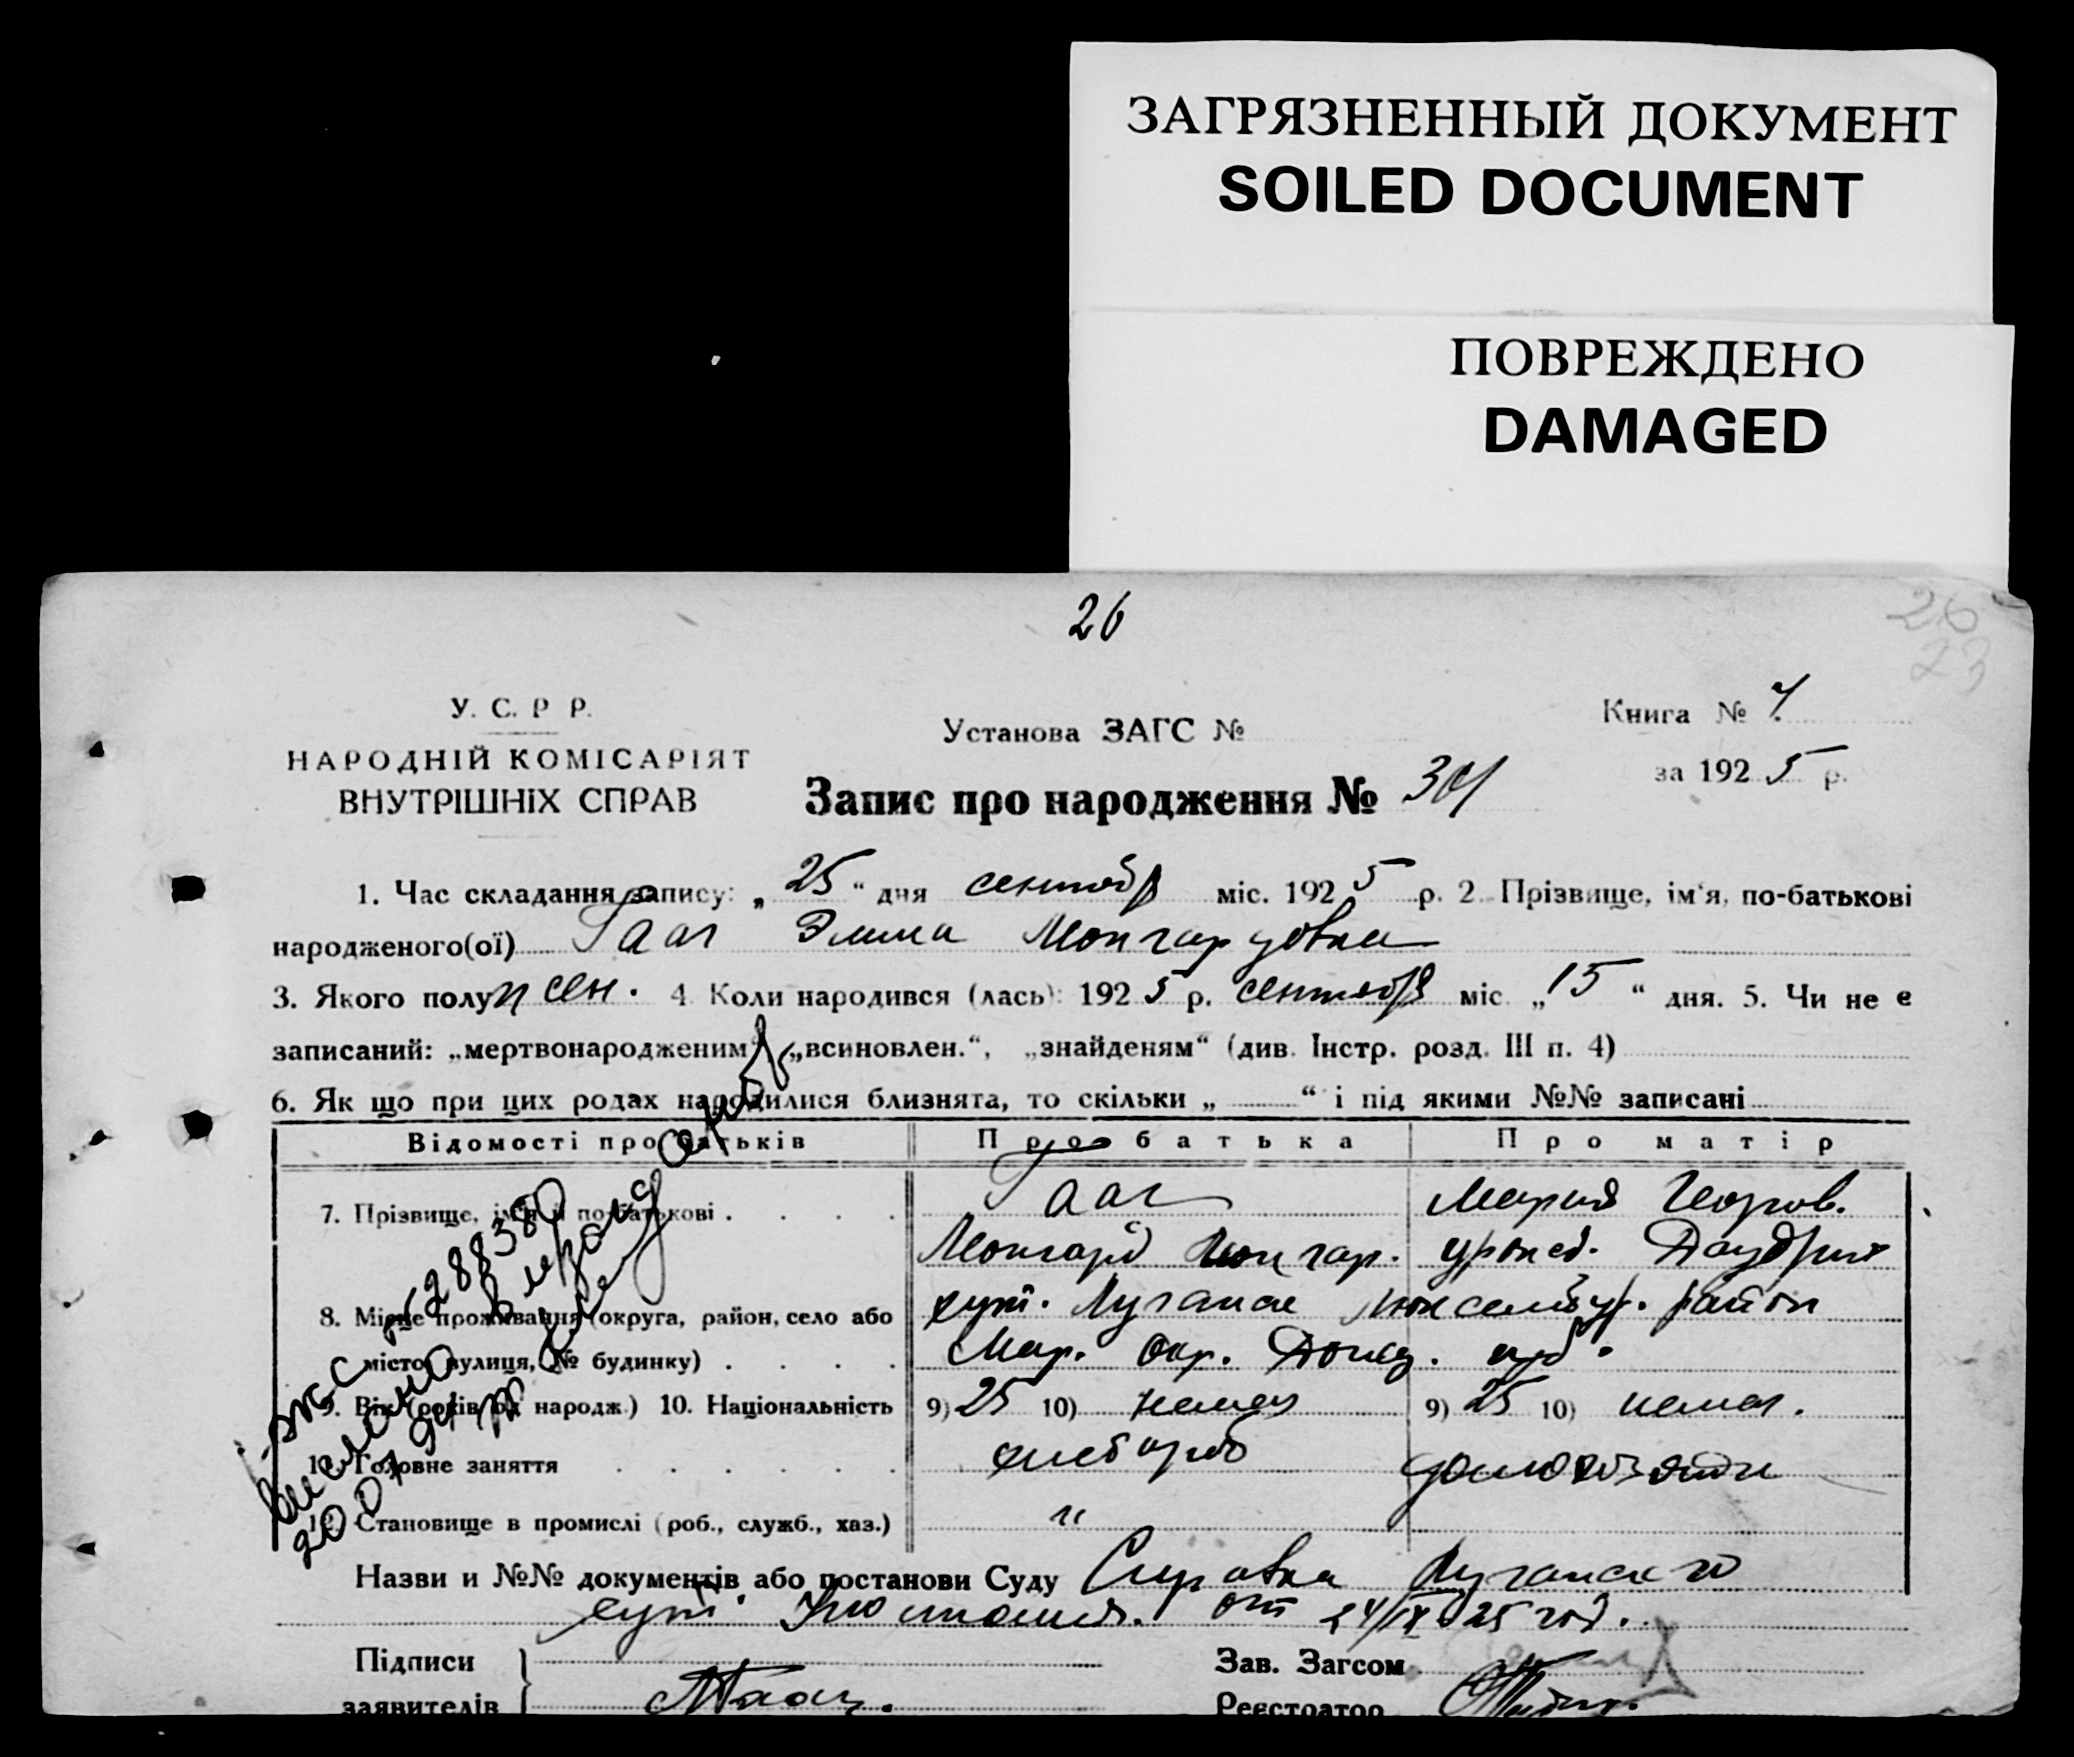 ЗАГРЯЗНЕННЫЙ ДОКУМЕНТ
SOILED DOCUMENT
ПОВРЕЖДЕНО
DAMAGED
26
26
23
У. С. Р Р.
НАРОДНІЙ КОМІСАРІЯТ
ВНУТРІШНІХ СПРАВ
Установа ЗАГС №
Книга №
за 1925 р.
Запис про народження №
1. Час складання запису: „25“ дня сентябр міс. 1925 р. 2 Прізвище, ім'я, по-батькові
народженого(ої) Гааг Эмма Монгардовна
3. Якого полу жен. 4 Коли народився (лась): 1925 р. сентября міс „15“ дня. 5. Чи не е
записаний: „мертвонародженим“, „всиновлен.“, „знайденям“ (див. Інстр. розд. III п. 4)
6. Як що при цих родах народилися близнята, то скільки „ “ і під якими №№ записані
Відомості про батьків Про батька Про матір
7. Прізвище, ім'я й по-батькові Гааг Мария Георгов.
Монгард Монгар. урожд.
8. Місце проживання (округа, район, село або хут. Луганск Люксембур. район
місто, вулиця, № будинку) Мар. окр. Донец. губ.
9. Вік (років од народж.) 10. Національність 9) 25 10) немец 9) 25 10) немец.
11. Головне заняття хлебороб домохозяйн
12. Становище в промислі (роб., служб., хаз.) "
Назви и №№ документів або постанови Суду Справка Луганского
хут. от 24/IX 25 год.
Підписи
заявителів Гааг.
Зав. Загсом
Реєстратор
288380